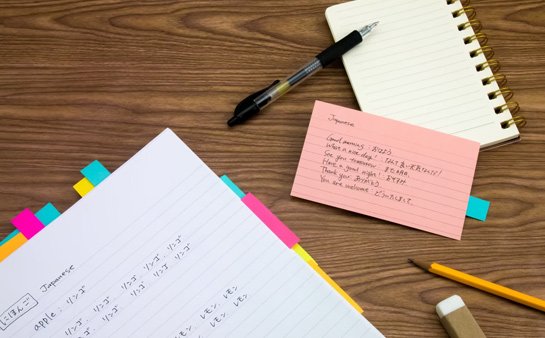 Japanese
Good morning : おはよう
What a nice day! : なんて良い天気なんだ!
See you tomorrow : また明日
Have a good night! : おやすみ
Thank you : ありがとう
You are welcome : どういたしまして
Japanese
にほんご
apple : リンゴ リンゴ リンゴ リンゴ
リンゴ リンゴ リンゴ リンゴ
リンゴ
レモン レモン
レモン レモン